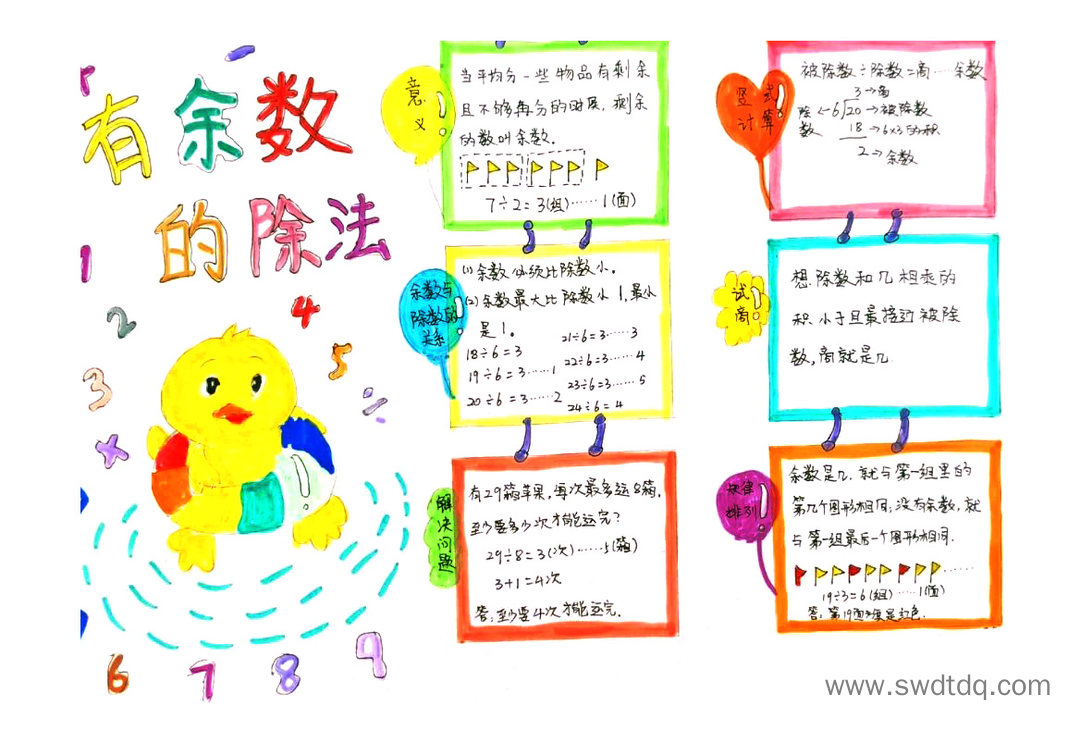 有余数
的除法
1
2
3
4
5
×
÷
6
7
8
9
意义
当平均分一些物品有剩余
且不够再分的时候，剩余
的数叫余数.
7÷2=3(组)……1(面)
余数与
除数的
关系
(1)余数必须比除数小.
(2)余数最大比除数小1,最小
是1.
18÷6=3
19÷6=3……1
20÷6=3……2
21÷6=3……3
22÷6=3……4
23÷6=3……5
24÷6=4
解决问题
有29箱苹果,每次最多运8箱.
至少要多少次才能运完?
29÷8=3(次)……5(箱)
3+1=4次
答:至少要4次才能运完.
竖式
计算
被除数÷除数=商……余数
3→商
除数←6 20→被除数
18→6×3的积
2→余数
试商
想除数和几相乘的
积小于且最接近被除
数,商就是几
规律
排列
余数是几,就与第一组里的
第几个图形相同,没有余数,就
与第一组最后一个图形相同.
……
19÷3=6(组)……1(面)
答:第19面 是红色.
www.swdtdq.com